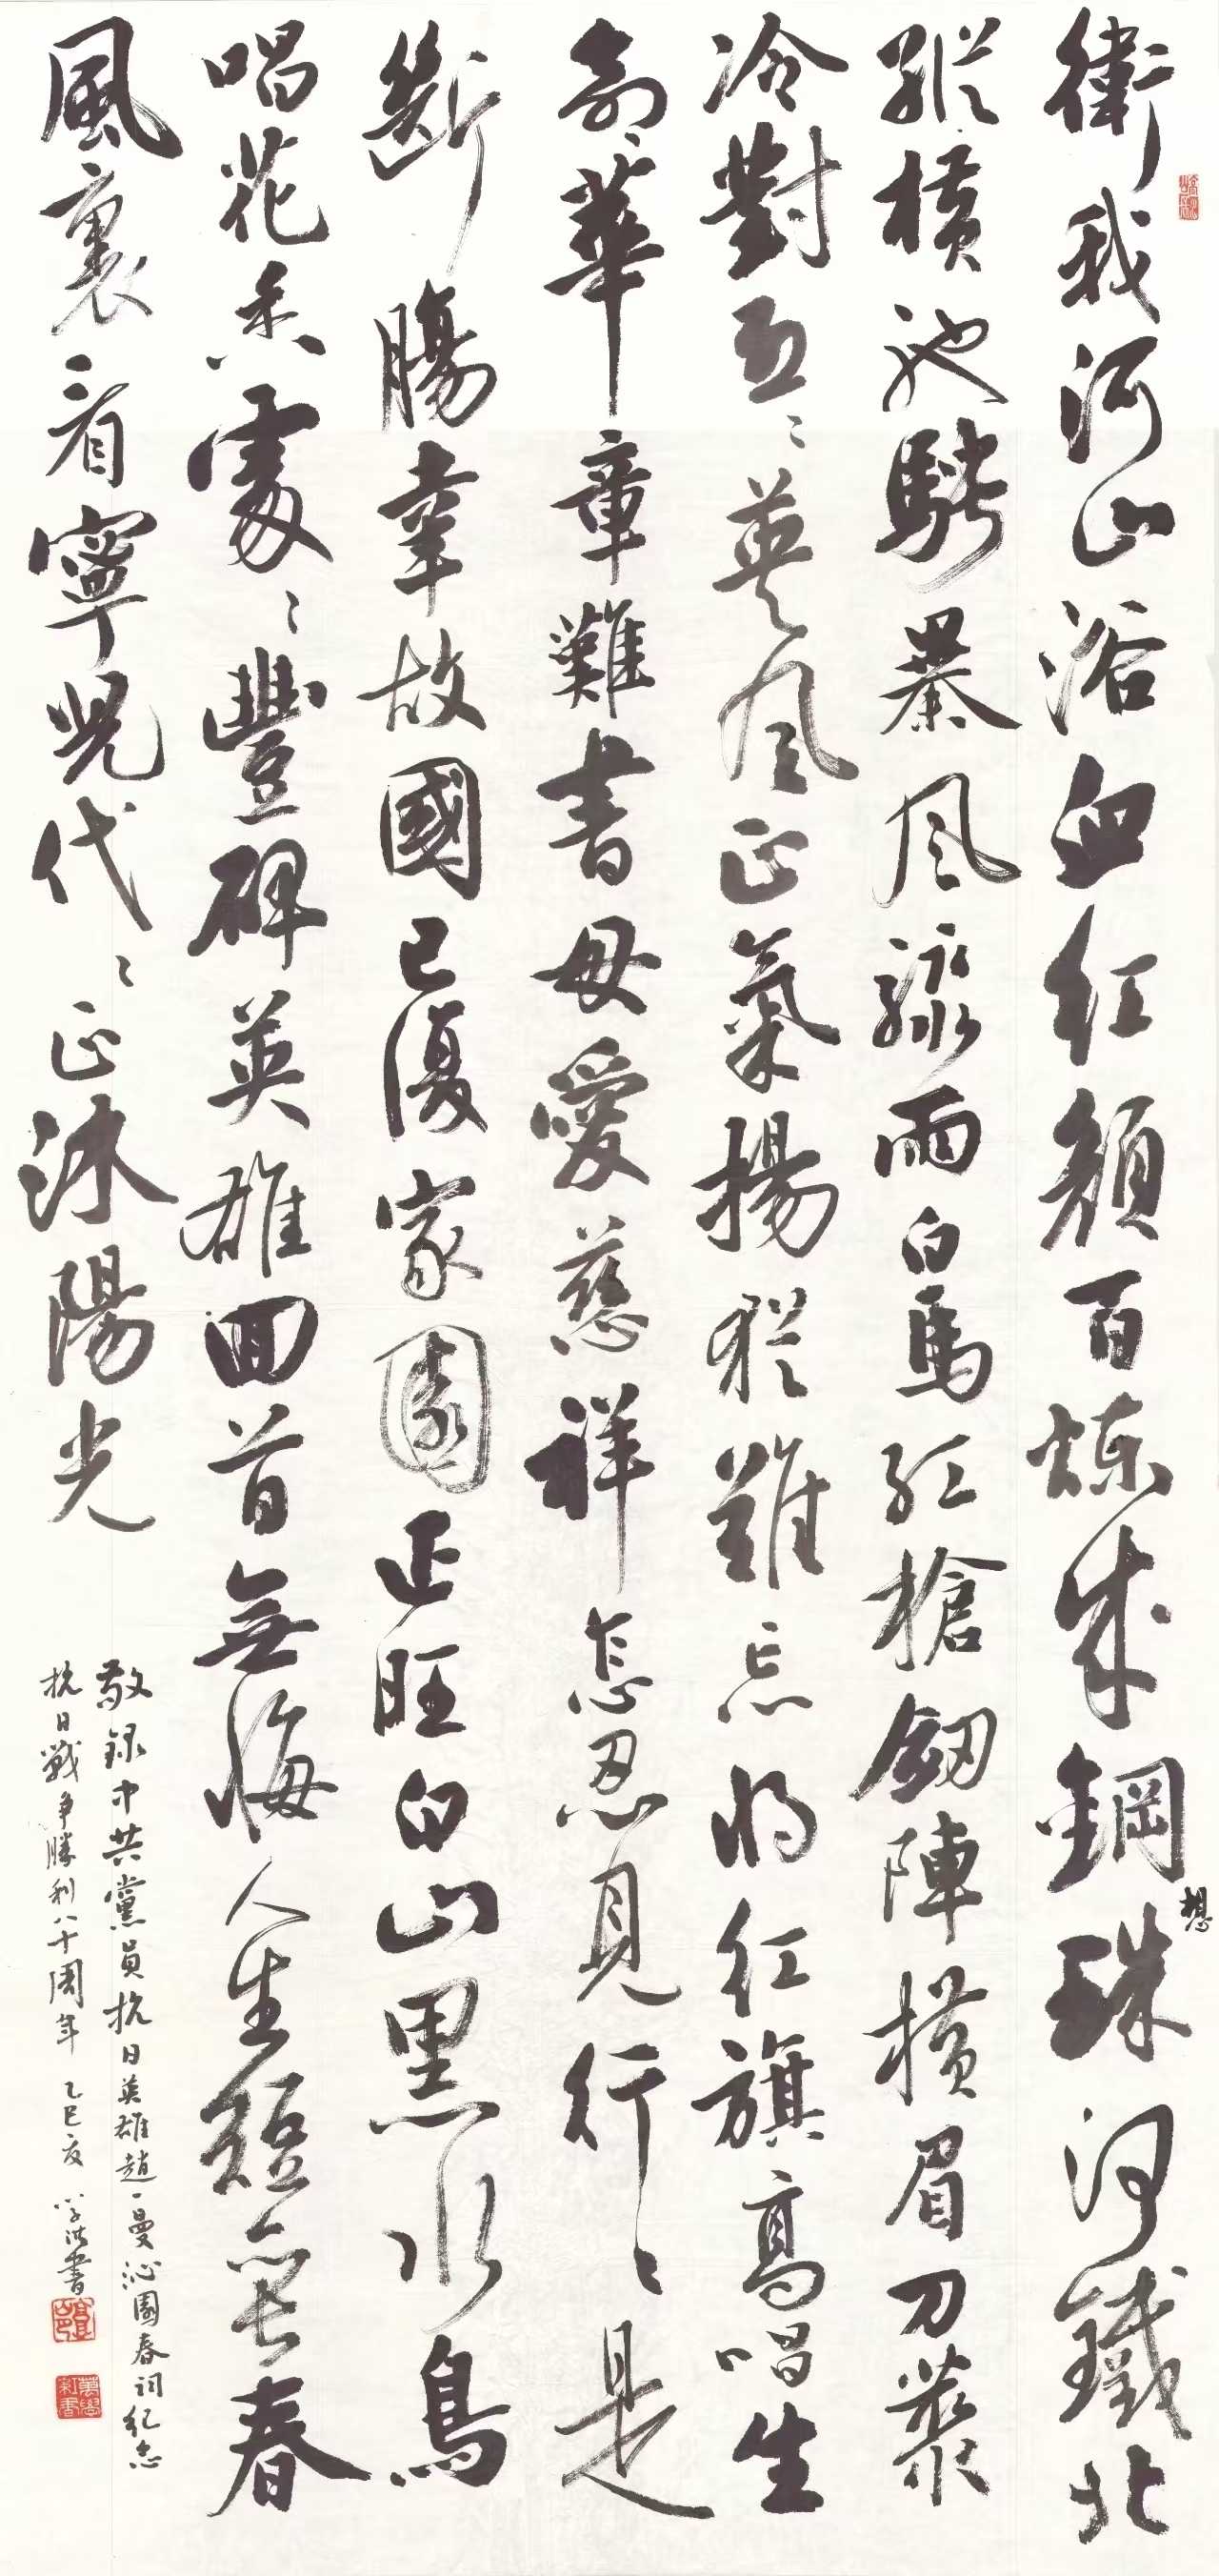 衛我河山浴血紅顏百煉成鋼想珠河鐵北
縱橫馳騁暴風驟雨白馬紅槍劍陣橫眉刀叢
冷對亙々英風正氣揚猶難忘將紅旗高唱生
命華章難書母愛慈祥怎忍見行々是
斷腸幸故國已復家園正旺白山黑水鳥
唱花香處々豐碑英雄回首無悔人生短春
風裏看寧兒代々正沐陽光
敬録中共黨員抗日英雄趙一曼沁園春詞紀念
抗日戰爭勝利八十周年 乙巳夏 學洪書